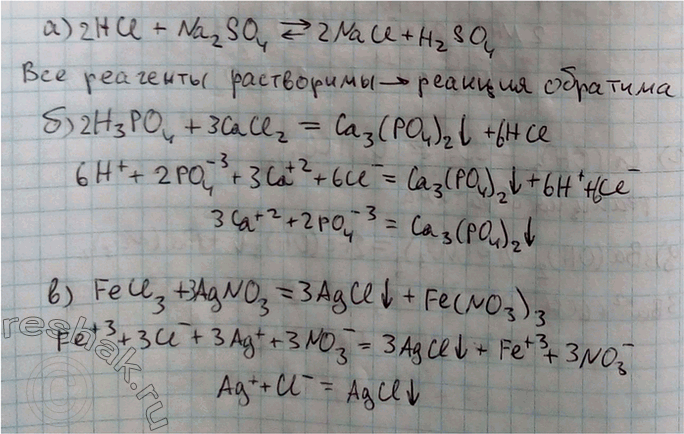 а) 2HCl + Na₂SO₄ ⇄ 2NaCl + H₂SO₄
Все реагенты растворимы → реакция обратима
б) 2H₃PO₄ + 3CaCl₂ = Ca₃(PO₄)₂↓ + 6HCl
6H⁺ + 2PO₄⁻³ + 3Ca⁺² + 6Cl⁻ = Ca₃(PO₄)₂↓ + 6H⁺ + 6Cl⁻
3Ca⁺² + 2PO₄⁻³ = Ca₃(PO₄)₂↓
в) FeCl₃ + 3AgNO₃ = 3AgCl↓ + Fe(NO₃)₃
Fe⁺³ + 3Cl⁻ + 3Ag⁺ + 3NO₃⁻ = 3AgCl↓ + Fe⁺³ + 3NO₃⁻
Ag⁺ + Cl⁻ = AgCl↓
reshak.ru